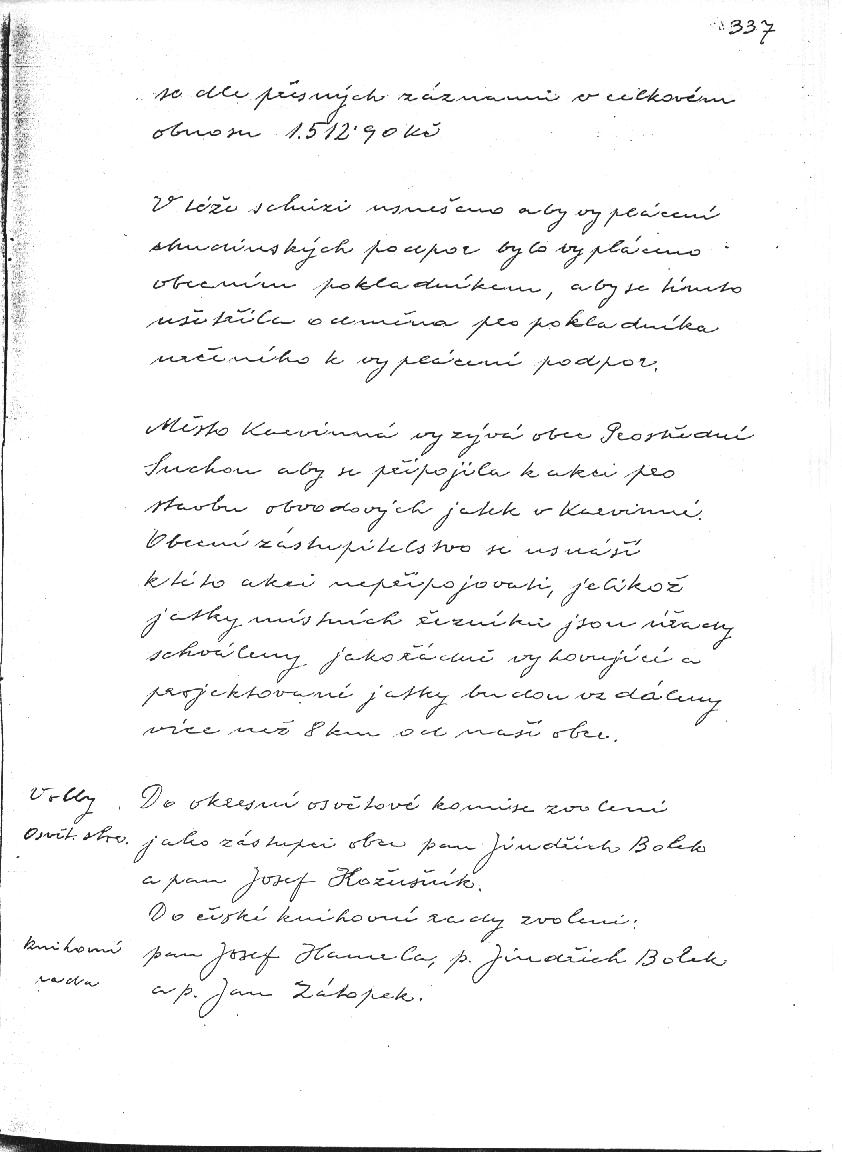 337
se dle přesných záznamů v celkovém
obnosu 1.512·90 Kč
V téže schůzi usnešeno aby vyplácení
studinských podpor bylo vypláceno
obecním pokladníkem, aby se tímto
ušetřila odměna pro pokladníka
určeného k vyplácení podpor.
Město Karvinná vyzývá obec Prostřední
Suchou aby se připojila k akci pro
stavbu obvodových jatek v Karvinné.
Obecní zástupitelstvo se usnáší
k této akci nepřipojovati, jelikož
jatky místních řezníků jsou úřady
schváleny jako řádně vyhovující a
projektované jatky budou vzdáleny
více než 8 km od naší obce.
Volby
Do okresní osvětové komise zvoleni
Osvět.
jako zástupci obce pan Jindřich Bolek
a pan Josef Kožušník.
Do české knihovní rady zvoleni:
Knihovní
pan Josef Hamela, p. Jindřich Bolek
rada
a p. Jan Zátopek.